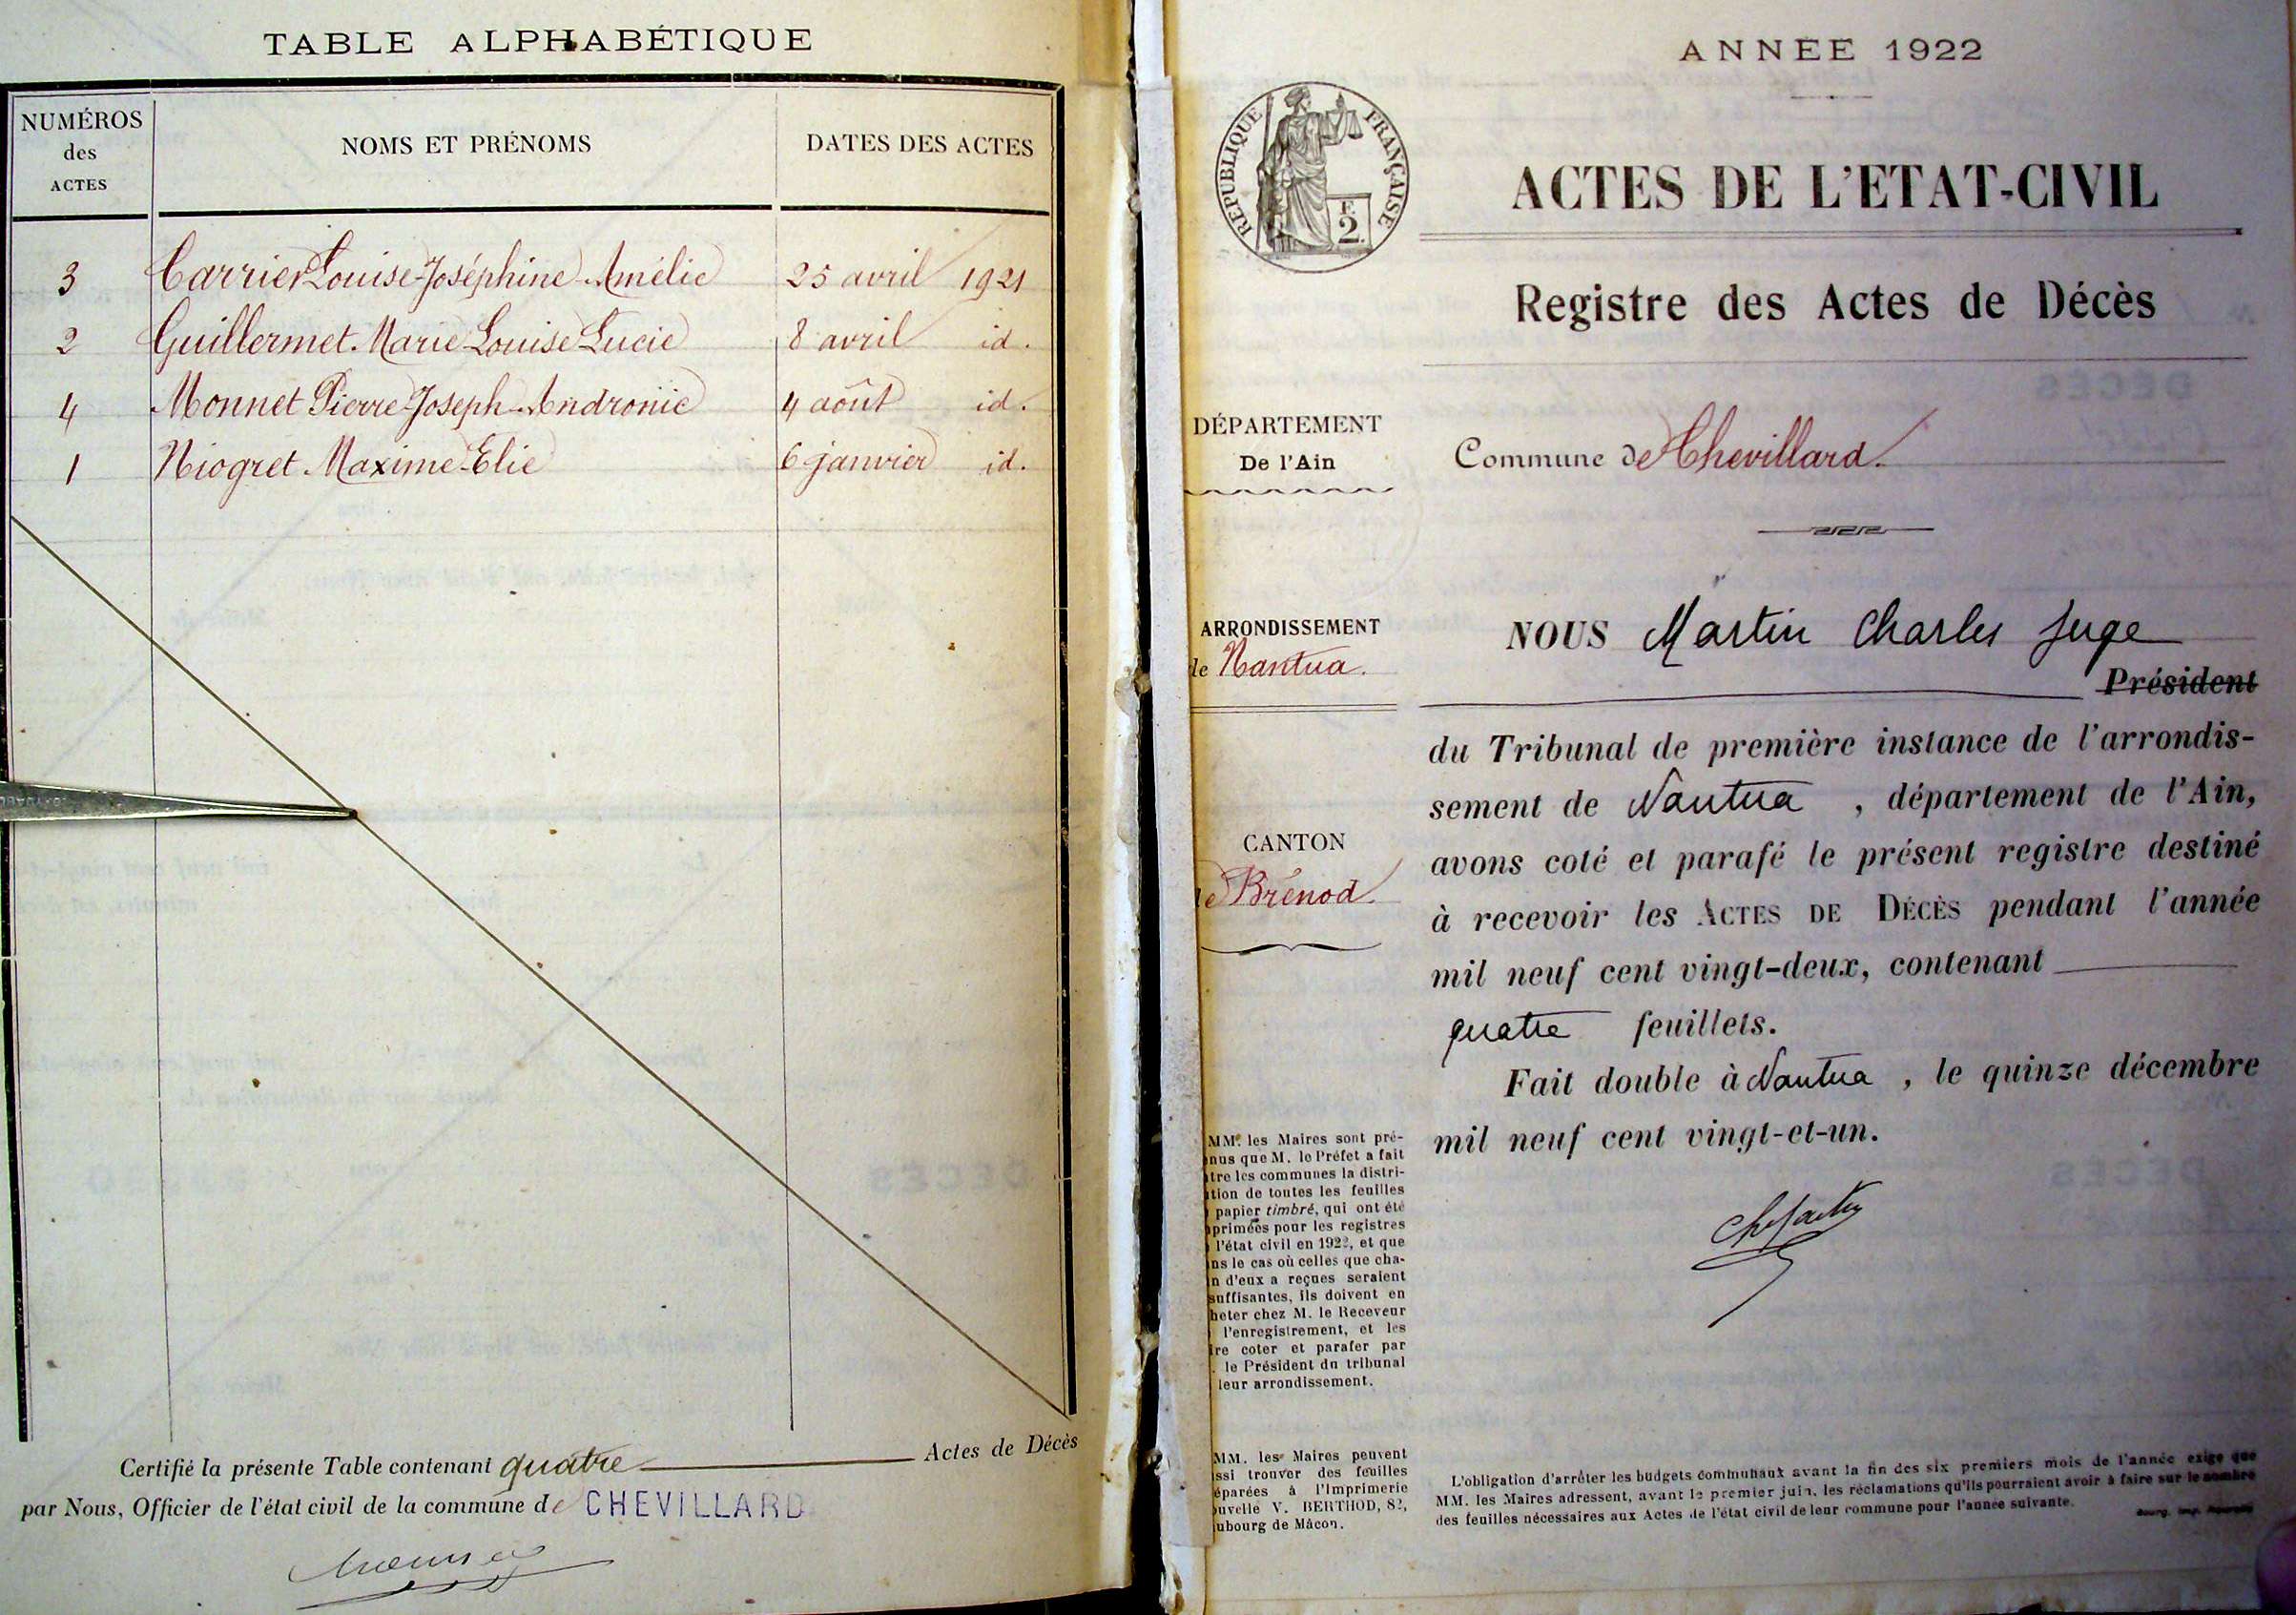 TABLE ALPHABÉTIQUE
NUMÉROS
des
ACTES
NOMS ET PRÉNOMS
DATES DES ACTES
3 Carrier Louise-Joséphine-Amélie 25 avril 1921
2 Guillermet Marie-Louise-Lucie 8 avril id.
4 Monnet Pierre-Joseph-Andronic 4 août id.
1 Niogret Maxime-Elie 6 janvier id.
Certifié la présente Table contenant quatre Actes de Décès
par Nous, Officier de l'état civil de la commune de CHEVILLARD
ANNÉE 1922
RÉPUBLIQUE FRANÇAISE
2 F.
ACTES DE L'ETAT-CIVIL
Registre des Actes de Décès
DÉPARTEMENT
De l'Ain
Commune de Chevillard.
ARRONDISSEMENT
de Nantua.
NOUS Martin Charles Juge
Président
du Tribunal de première instance de l'arrondis-
sement de Nantua, département de l'Ain,
avons coté et parafé le présent registre destiné
à recevoir les ACTES DE DÉCÈS pendant l'année
mil neuf cent vingt-deux, contenant
quatre feuillets.
Fait double à Nantua, le quinze décembre
mil neuf cent vingt-et-un.
CANTON
de Brénod.
MM. les Maires sont pré-
nus que M. le Préfet a fait
tre les communes la distri-
tion de toutes les feuilles
papier timbré, qui ont été
primées pour les registres
l'état civil en 1922, et que
ns le cas où celles que cha-
n d'eux a reçues seraient
suffisantes, ils doivent en
heter chez M. le Receveur
l'enregistrement, et les
ire coter et parafer par
le Président du tribunal
leur arrondissement.
MM. les Maires peuvent
ssi trouver des feuilles
éparées à l'Imprimerie
ouvelle V. BERTHOD, 82,
ubourg de Mâcon.
L'obligation d'arrêter les budgets communaux avant la fin des six premiers mois de l'année exige que
MM. les Maires adressent, avant le premier juin, les réclamations qu'ils pourraient avoir à faire sur le nombre
des feuilles nécessaires aux Actes de l'état civil de leur commune pour l'année suivante.